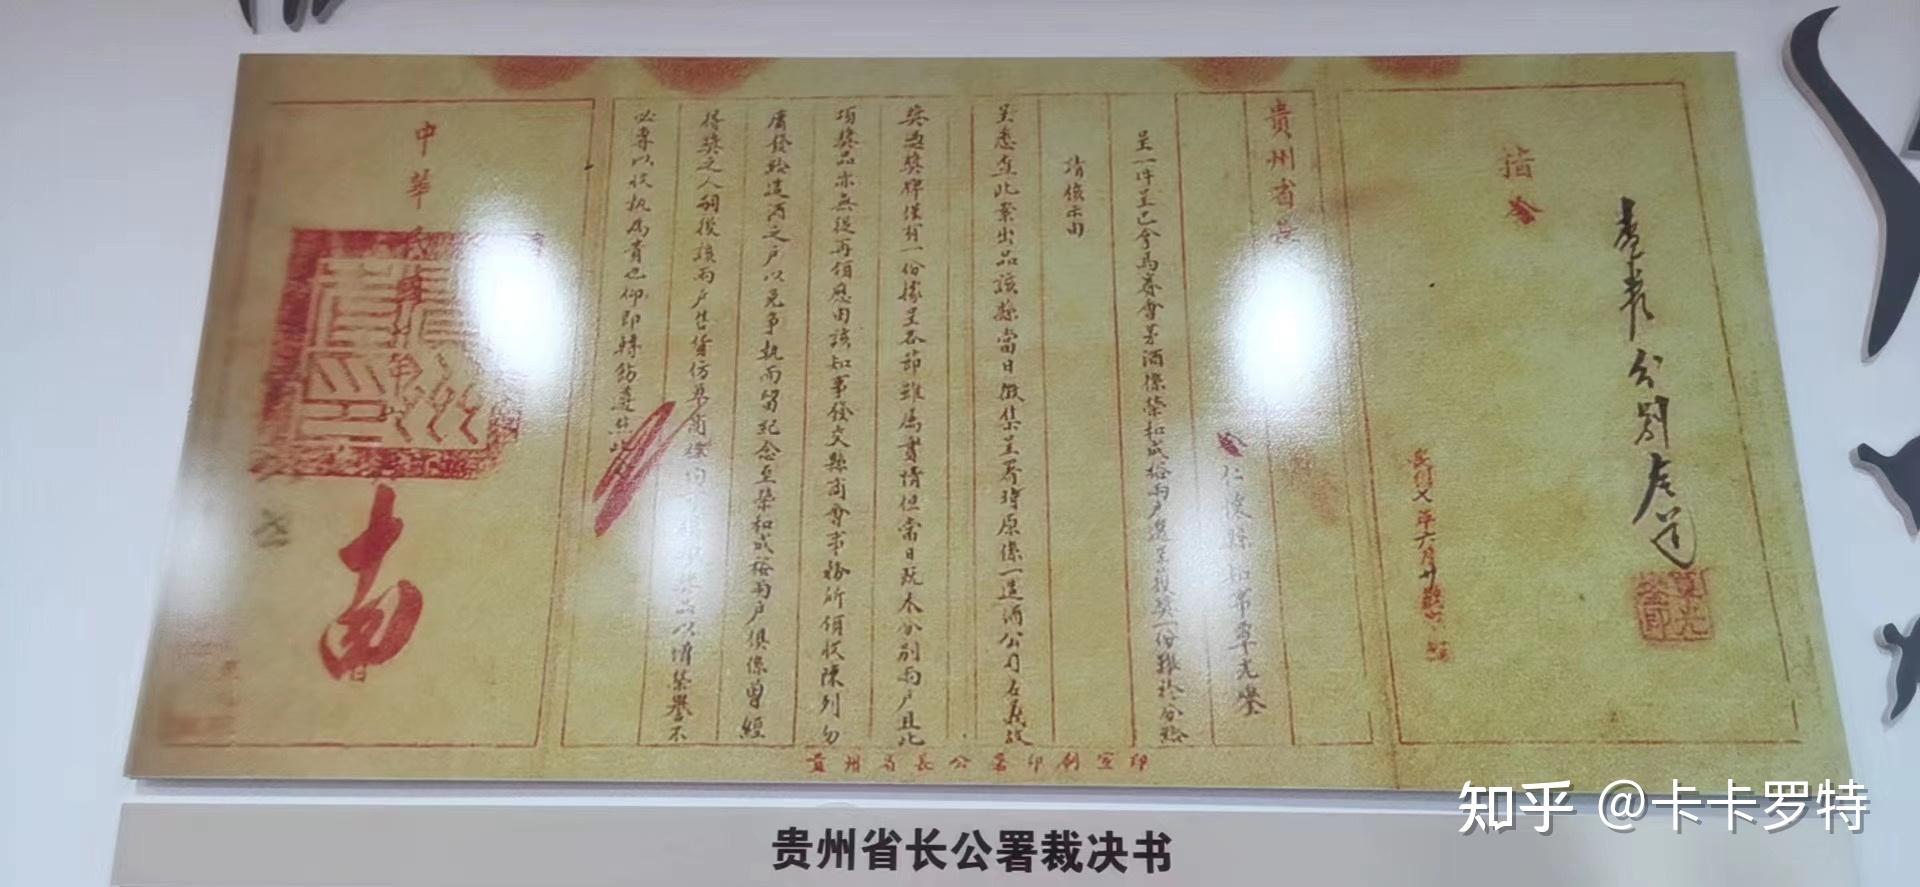 指
令
壹卷公別存
民國七年六月廿
貴州省長
令仁懷縣知事覃光鑾
呈一件呈巴拿馬賽會茅酒係榮和成裕兩戶選呈獲獎一份難於分給
請核示由
呈悉查此案出品該縣當日徵集呈署時原係一造酒公司名義故
獎憑獎牌僅有一份據呈各節雖屬實情但當日既未分別兩戶且此
項獎品亦無從再領應由該知事發交縣商會事務所領收陳列勿
庸發給造酒之戶以免爭執而留紀念至榮和成裕兩戶俱係曾經
得獎之人嗣後該兩戶售貨仿單商標均可獎品以增榮譽不
必專以收執為貴也仰即轉飭遵照此
中華民國年
貴州省長公署印刷室印
贵州省长公署裁决书
知乎 @卡卡罗特